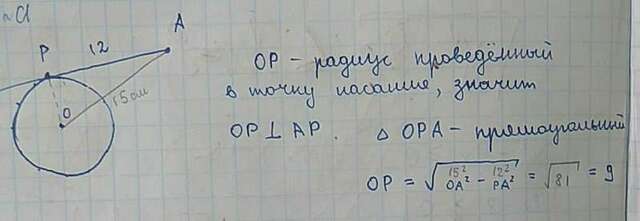 а
P 12 A
15 см
O
OP - радиус проведённый
в точку касание, значит
OP ⊥ AP. △ OPA - прямоугольный
15² 12²
OP = √OA² - PA² = √81 = 9